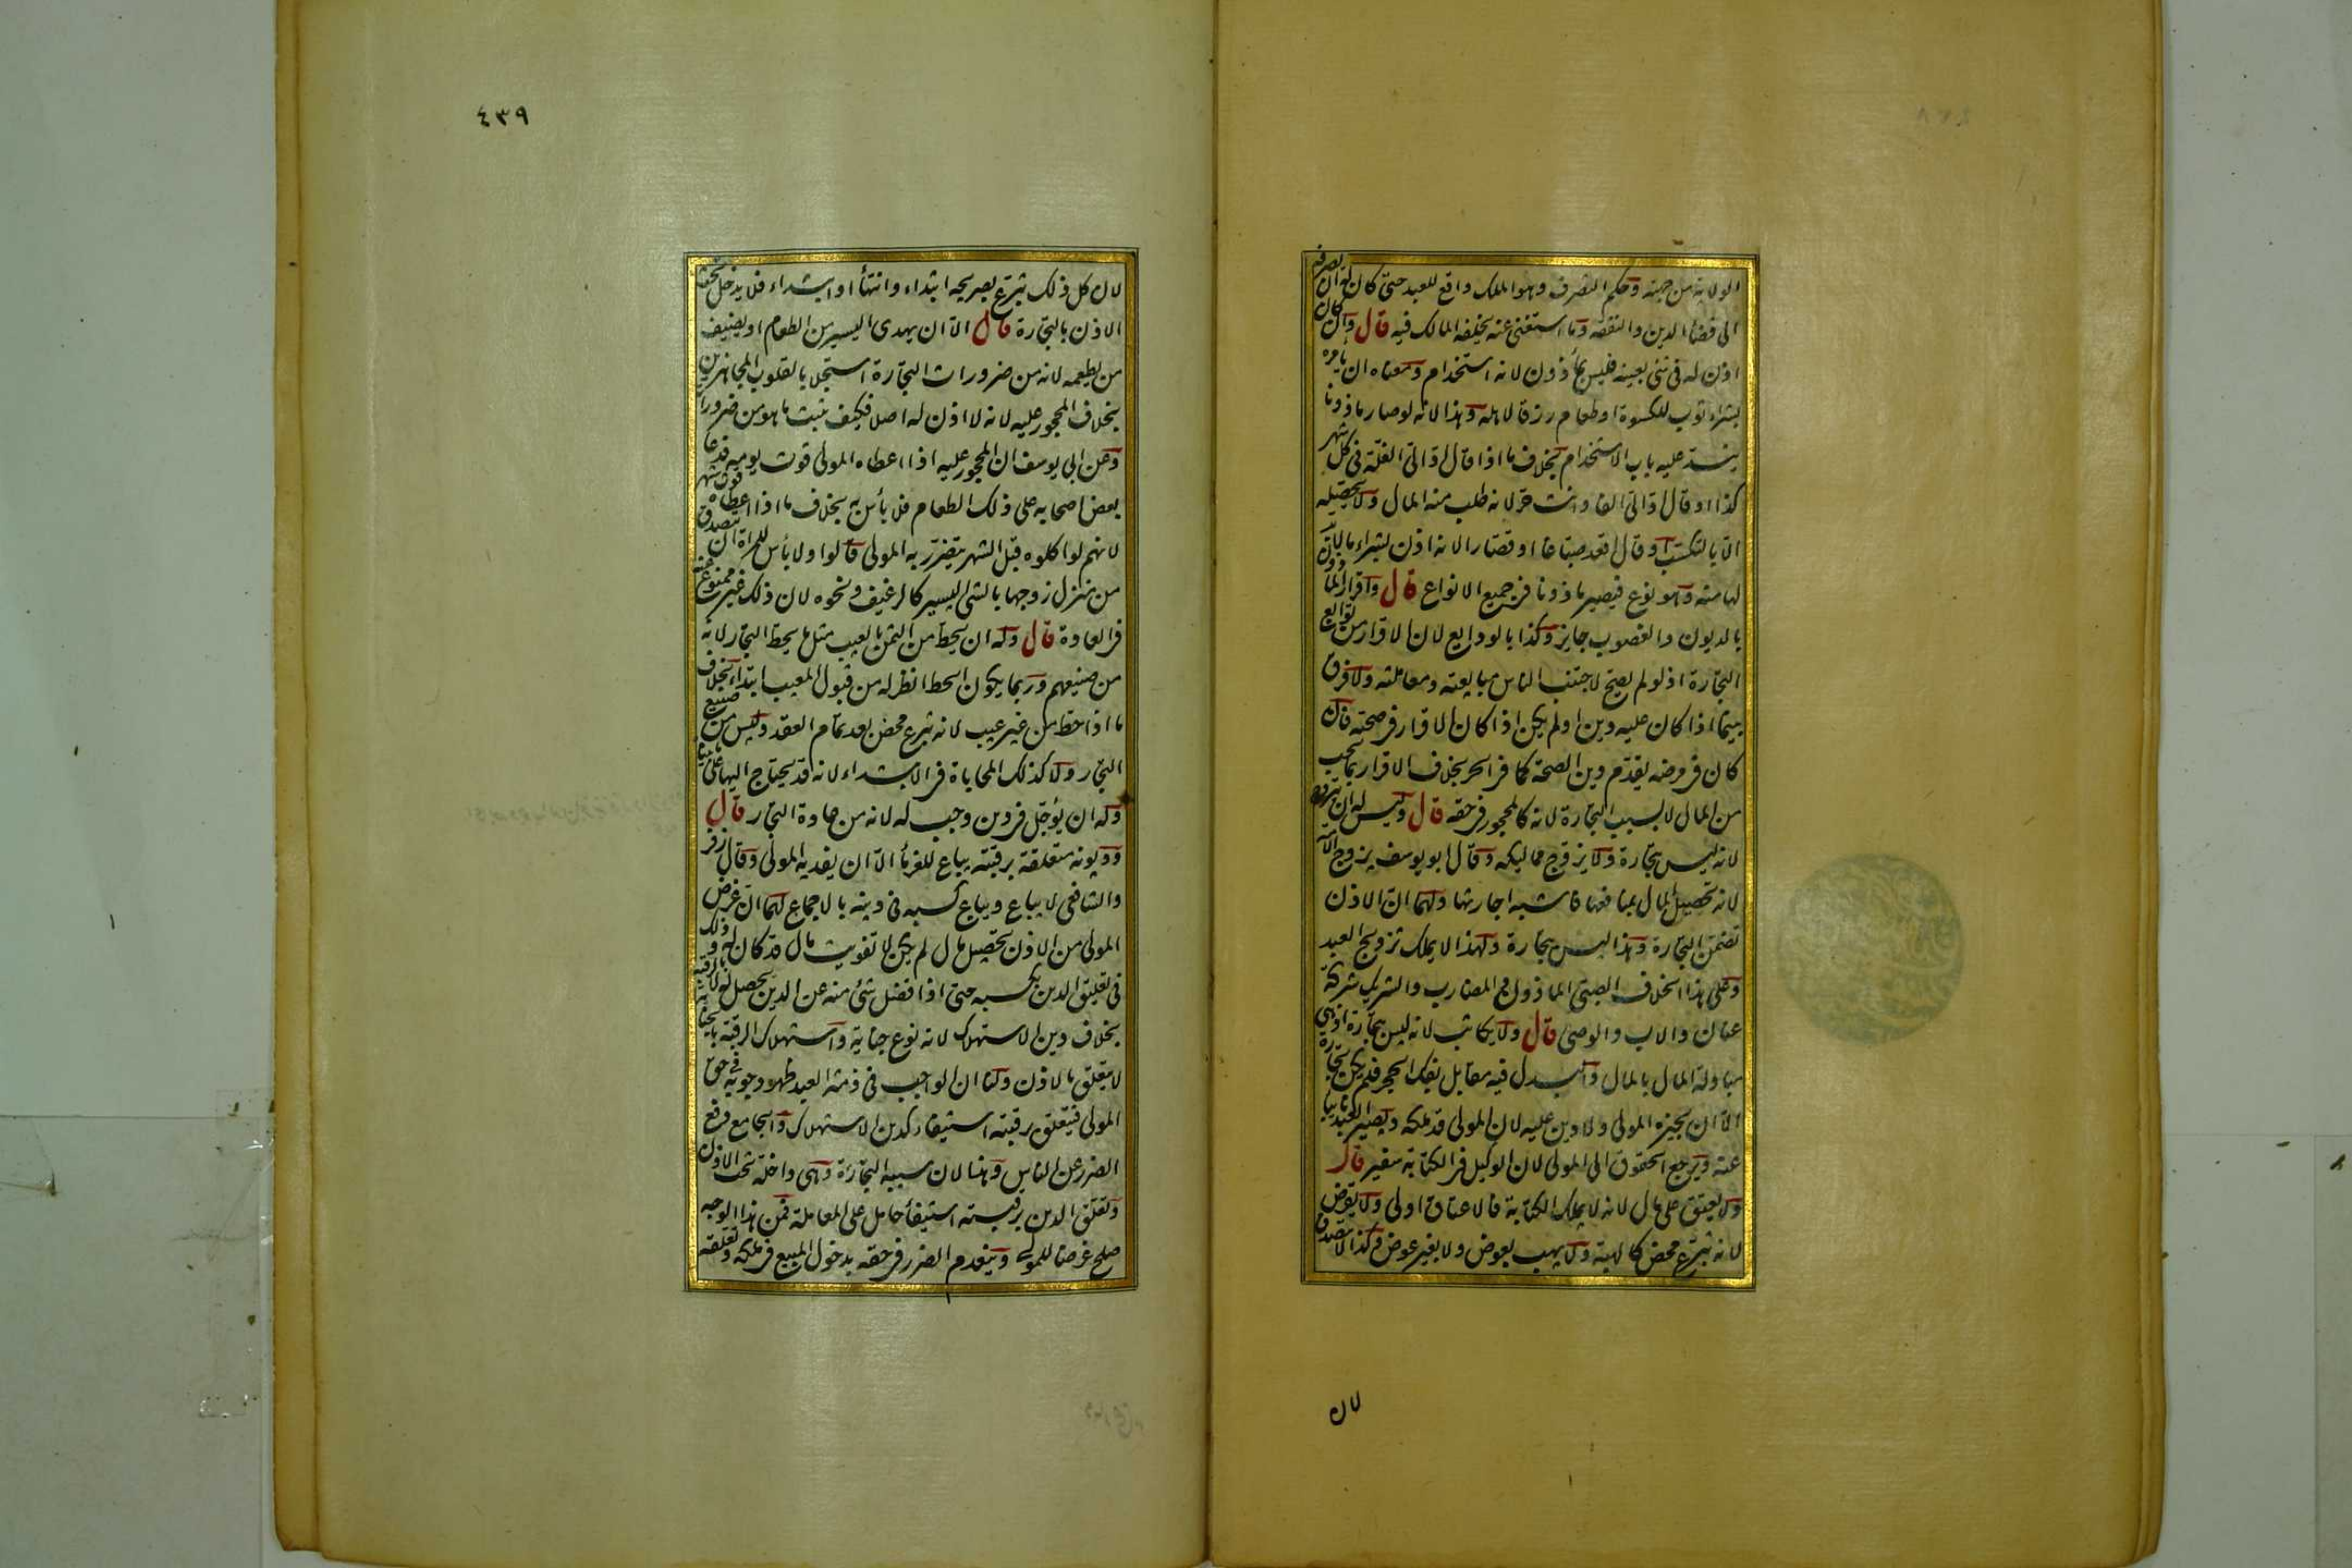 الولاية من جهته وحكم التصرف وهو الملك واقع للعبد حتى كان له ان يصرفه
الى قضاء الدين والنفقة وما استغنى عنه يخلفه المالك فيه قال وان كان
اذن له فى شئ بعينه فليس بمأذون لانه استخدام ومعناه ان يأمره
بشراء ثوب للكسوة او طعام رزقا لاهله وهذا لانه لو صار ماذونا
ينسد عليه باب الاستخدام بخلاف ما اذا قال اد الى الغلة فى كل شهر
كذا او قال اد الى الفا وانت حر لانه طلب منه المال ولا يحصله
الا بالتكسب او قال اقعد صباغا او قصارا لانه اذن بشراء ما لا بد
لهما منه وهو نوع فيصير ماذونا فى جميع الانواع قال واقرار الماذون
بالديون والغصوب جايز وكذا بالودايع لان الاقرار من توابع
التجارة اذ لو لم يصح لاجتنب الناس مبايعته ومعاملته ولا فرق
بينما اذا كان عليه دين او لم يكن اذا كان الاقرار فى صحته فان
كان فى مرضه يقدم دين الصحة كما فى الحر بخلاف الاقرار بما يجب
من المال لا بسبب التجارة لانه كالمحجور فى حقه قال وليس له ان يتزوج
لانه ليس بتجارة ولا يزوج مماليكه وقال ابو يوسف يزوج الامة
لانه تحصيل المال بمنافعها فاشبه اجارتها ولهما ان الاذن
تضمن التجارة وهذا ليس بتجارة ولهذا لا يملك تزويج العبد
وعلى هذا الخلاف الصبى الماذون والمضارب والشريك شركة
عنان والاب والوصى قال ولا يكاتب لانه ليس بتجارة اذ هى
مبادلة المال بالمال والبدل فيه مقابل بفك الحجر فلم يكن تجارة
الا ان يجيزه المولى ولا دين عليه لان المولى قد ملكه ويصير العبد نايبا
عنه ويرجع الحقوق الى المولى لان الوكيل فى الكتابة سفير قال
ولا يعتق على مال لانه لا يملك الكتابة فالاعتاق اولى ولا يقرض
لانه تبرع محض كالهبة ولا يهب بعوض ولا بغير عوض وكذا لا يتصدق
لان
٤٣٩
لان كل ذلك تبرع بصريحه ابتداء وانتهأ او ابتداء فلا يدخل تحت
الاذن بالتجارة قال الا ان يهدى اليسير من الطعام او يضيف
من يطعمه لانه من ضرورات التجارة استجلابا لقلوب المجاهزين
بخلاف المحجور عليه لانه لا اذن له اصلا فكيف يثبت ما هو من ضروراته
وعن ابى يوسف ان المحجور عليه اذا اعطاه المولى قوت يومه فدعا
بعض اصحابه على ذلك الطعام فلا بأس به بخلاف ما اذا اعطاه قوت شهر
لانهم لو اكلوه قبل الشهر يتضرر به المولى قالوا ولا بأس للمراة ان تتصدق
من منزل زوجها بالشئ اليسير كالرغيف ونحوه لان ذلك غير ممنوع عنه
فى العادة قال وله ان يحط من الثمن بالعيب مثل ما يحط التجار لانه
من صنيعهم وربما يكون الحط انظر له من قبول المعيب ابتداء بخلاف
ما اذا حط من غير عيب لانه تبرع محض بعد تمام العقد وليس من صنيع
التجار ولا كذلك المحاباة فى الابتداء لانه قد يحتاج اليها على ما بينا
وله ان يؤجل فى دين وجب له لانه من عادة التجار قال
وديونه متعلقة برقبته يباع للغرمأ الا ان يفديه المولى وقال زفر
والشافعى لا يباع ويباع كسبه فى دينه بالاجماع لهما ان غرض
المولى من الاذن تحصيل مال لم يكن لا تفويت مال قد كان له وذلك
فى تعليق الدين بكسبه حتى اذا فضل شئ منه عن الدين يحصل له لا بالرقبة
بخلاف دين الاستهلاك لانه نوع جناية واستهلاك الرقبة بالجناية
لا يتعلق بالاذن ولنا ان الواجب فى ذمة العبد ظهر وجوبه فى حق
المولى فيتعلق برقبته استيفاء كدين الاستهلاك والجامع دفع
الضرر عن الناس وهذا لان سببه التجارة وهى داخلة تحت الاذن
وتعلق الدين برقبته استيفأ حامل على المعاملة فمن هذا الوجه
صلح غرضا للمولى وينعدم الضرر فى حقه بدخول المبيع فى ملكه وتعلقه